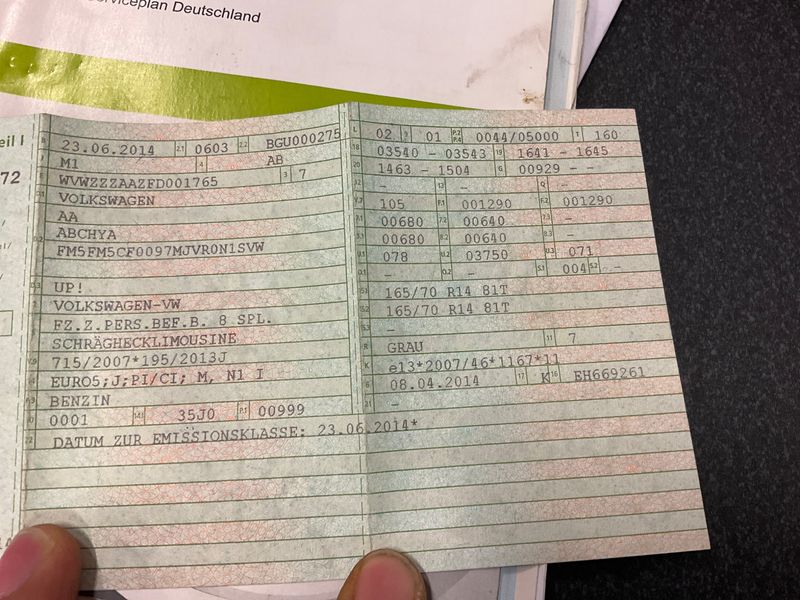 rviceplan Deutschland
eil I
72
B 23.06.2014 2.1 0603 2.2 BGU000275
J M1 4 AB
E WVWZZZAAZFD001765 3 7
VOLKSWAGEN
AA
ABCHYA
FM5FM5CF0097MJVR0N1SVW
D.3 UP!
2 VOLKSWAGEN-VW
5 FZ.Z.PERS.BEF.B. 8 SPL.
SCHRÄGHECKLIMOUSINE
V.9 715/2007*195/2013J
14 EURO5;J;PI/CI; M, N1 I
P.3 BENZIN
10 0001 14.1 35J0 P.1 00999
22 DATUM ZUR EMISSIONSKLASSE: 23.06.2014*
L 02 9 01 P.2 P.4 0044/05000 T 160
18 03540 - 03543 19 1641 - 1645
20 1463 - 1504 G 00929 - -
12 - 13 - Q -
V.7 105 F.1 001290 F.2 001290
7.1 00680 7.2 00640 7.3 -
8.1 00680 8.2 00640 8.3 -
U.1 078 U.2 03750 U.3 071
O.1 - O.2 - S.1 004 S.2 -
15.1 165/70 R14 81T
15.2 165/70 R14 81T
15.3 -
R GRAU 11 7
K e13*2007/46*1167*11
6 08.04.2014 17 K 16 EH669261
21 -